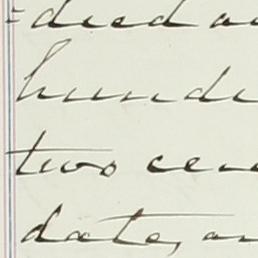 =died a
hunde
two cen
date, an